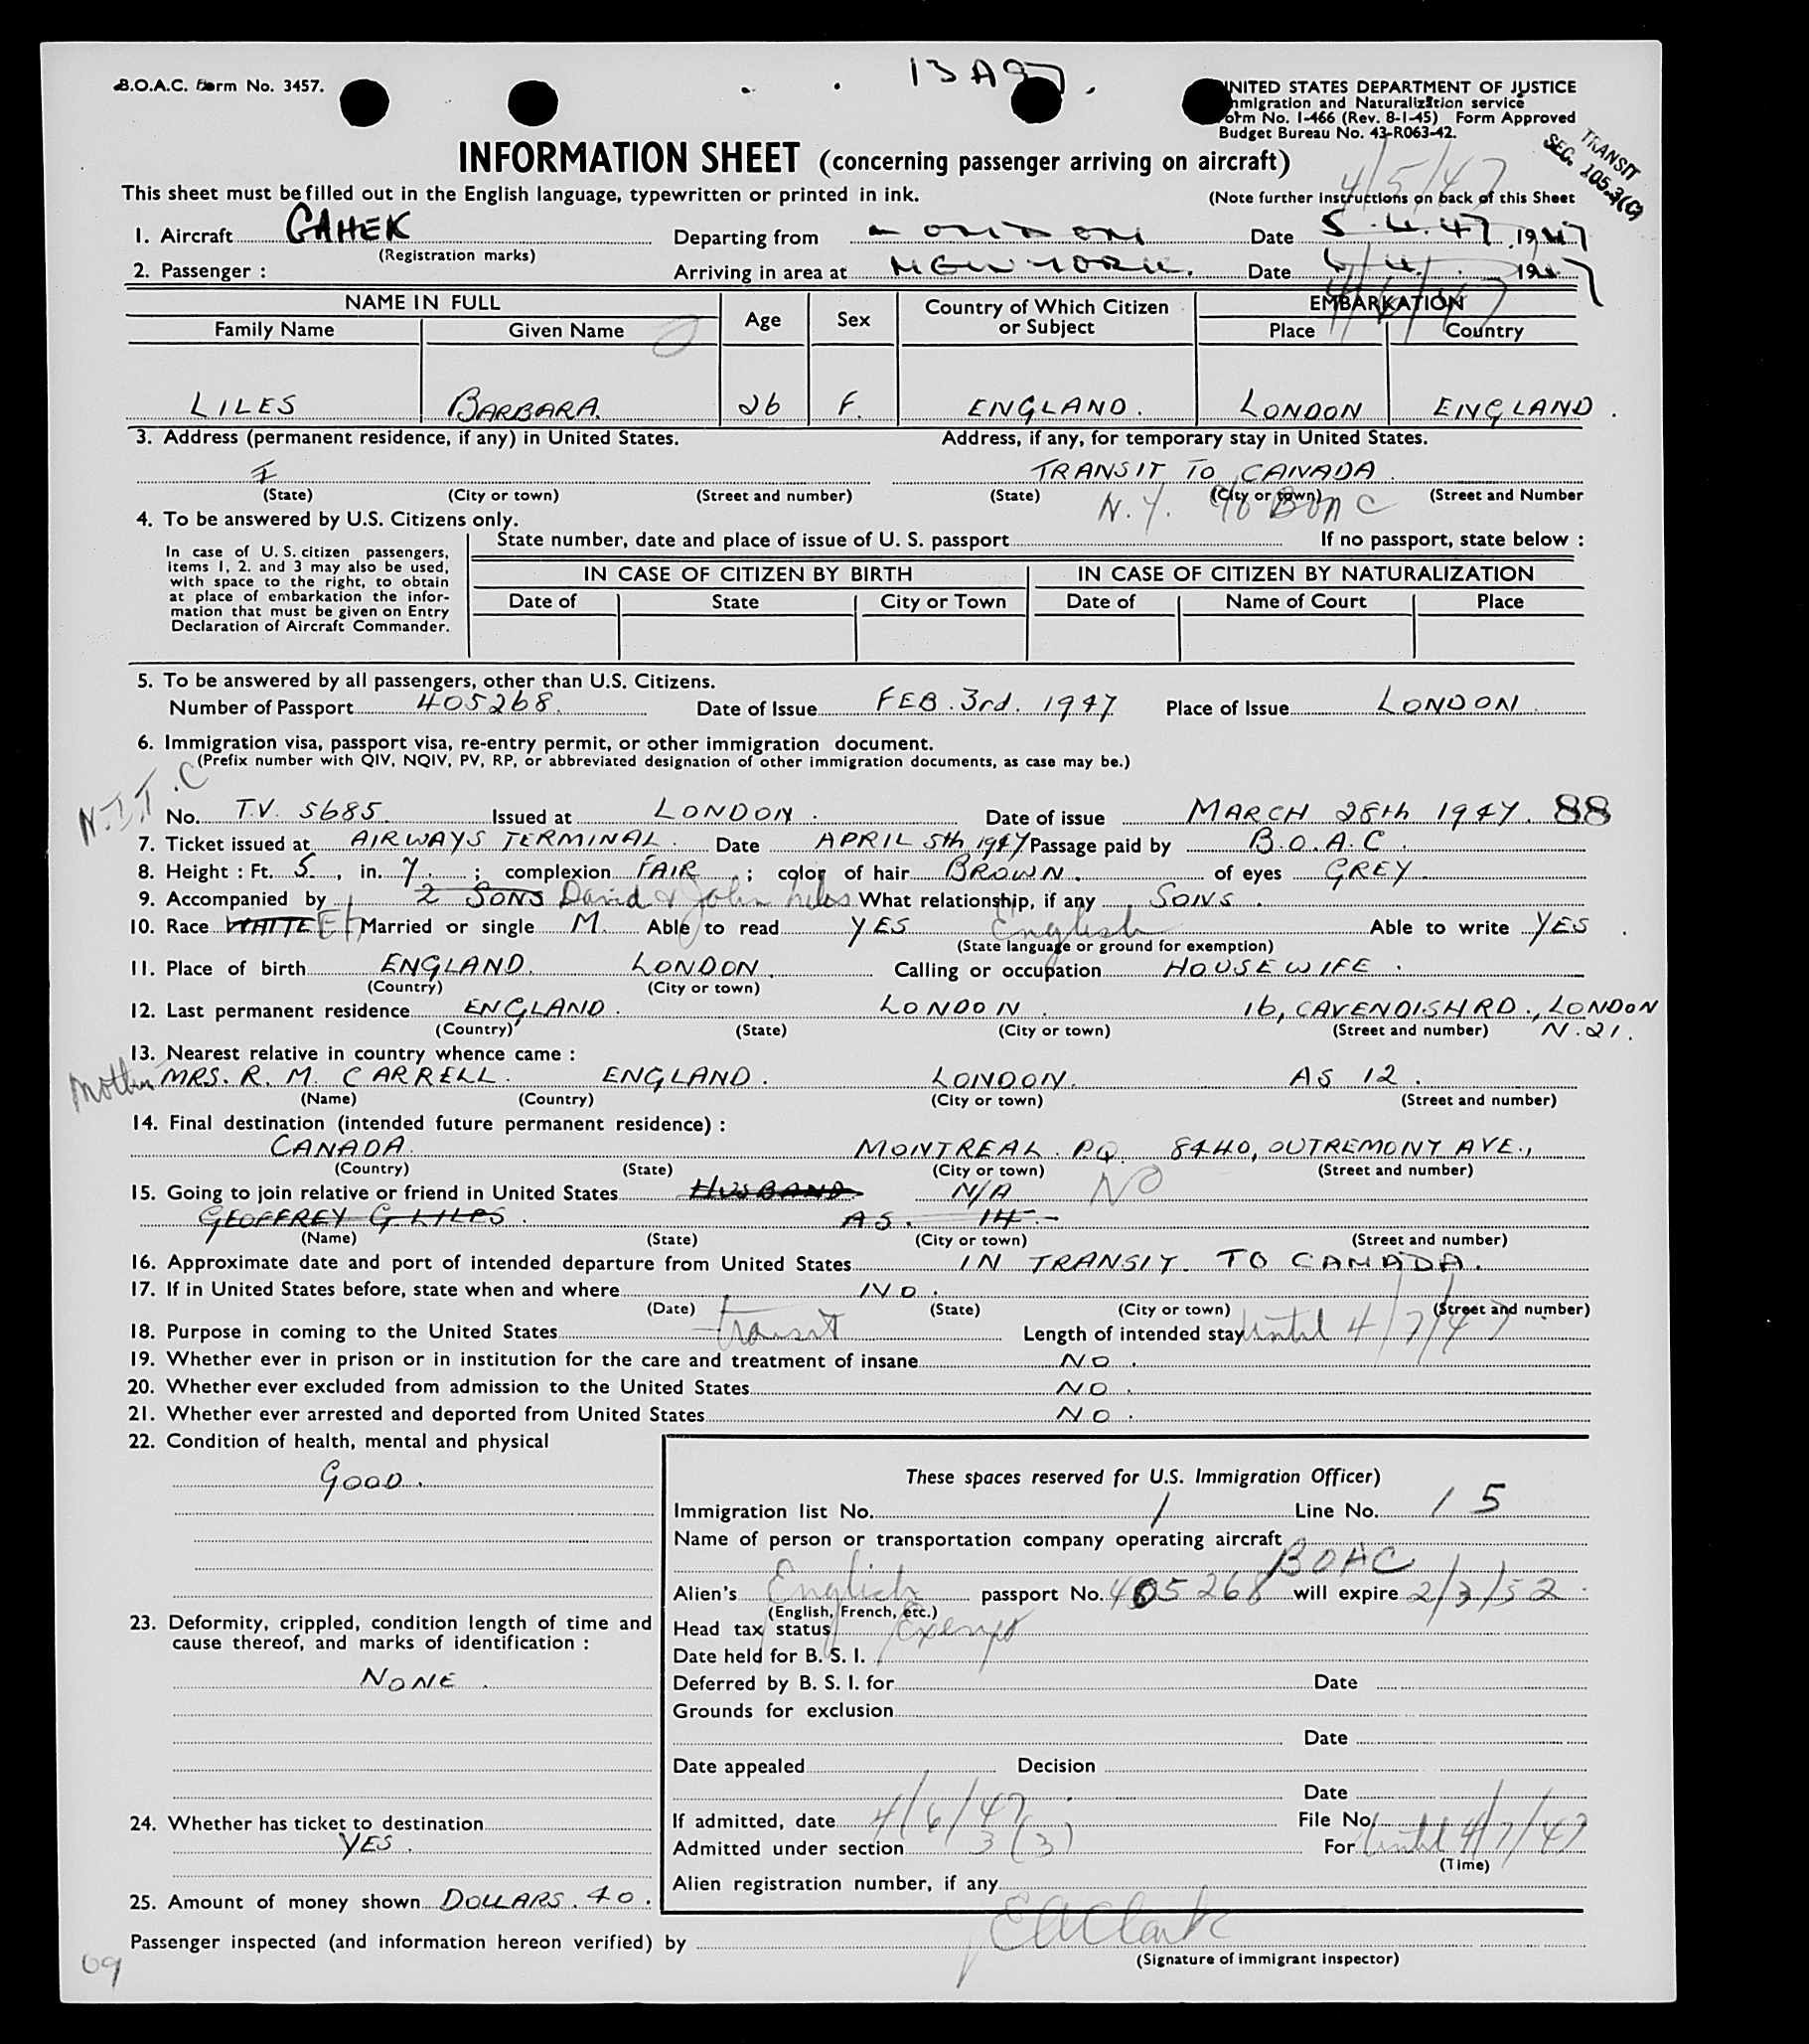 13 A97
B.O.A.C. Form No. 3457.
UNITED STATES DEPARTMENT OF JUSTICE
Immigration and Naturalization service
Form No. I-466 (Rev. 8-1-45) Form Approved
Budget Bureau No. 43-R063-42.
TRANSIT
SEC. 105.3(C)
INFORMATION SHEET (concerning passenger arriving on aircraft)
4/5/47
This sheet must be filled out in the English language, typewritten or printed in ink. (Note further instructions on back of this Sheet
1. Aircraft GAHEK Departing from LONDON Date 5.4.47 1947
(Registration marks)
2. Passenger : Arriving in area at NEW YORK. Date 1947
4/6/47
NAME IN FULL Age Sex Country of Which Citizen or Subject EMBARKATION
Family Name Given Name Place Country
LILES BARBARA. 26 F. ENGLAND. LONDON ENGLAND.
3. Address (permanent residence, if any) in United States. Address, if any, for temporary stay in United States.
TRANSIT TO CANADA.
(State) (City or town) (Street and number) (State) (City or town) (Street and Number
N.Y. c/o BOAC
4. To be answered by U.S. Citizens only.
State number, date and place of issue of U. S. passport If no passport, state below :
In case of U. S. citizen passengers,
items 1, 2. and 3 may also be used,
with space to the right, to obtain
at place of embarkation the infor-
mation that must be given on Entry
Declaration of Aircraft Commander.
IN CASE OF CITIZEN BY BIRTH IN CASE OF CITIZEN BY NATURALIZATION
Date of State City or Town Date of Name of Court Place
5. To be answered by all passengers, other than U.S. Citizens.
Number of Passport 405268. Date of Issue FEB. 3rd. 1947 Place of Issue LONDON.
6. Immigration visa, passport visa, re-entry permit, or other immigration document.
(Prefix number with QIV, NQIV, PV, RP, or abbreviated designation of other immigration documents, as case may be.)
N.I.T.C
No. T.V. 5685. Issued at LONDON. Date of issue MARCH 28th 1947. 88
7. Ticket issued at AIRWAYS TERMINAL. Date APRIL 5th 1947 Passage paid by B.O.A.C.
8. Height : Ft. 5. , in. 7. ; complexion FAIR ; color of hair BROWN. of eyes GREY.
9. Accompanied by 2 SONS David & John Liles What relationship, if any SONS.
10. Race WHITE Married or single M. Able to read YES English Able to write YES.
(State language or ground for exemption)
11. Place of birth ENGLAND. LONDON. Calling or occupation HOUSEWIFE.
(Country) (City or town)
12. Last permanent residence ENGLAND. LONDON. 16, CAVENDISH RD., LONDON
(Country) (State) (City or town) (Street and number) N.21.
13. Nearest relative in country whence came :
Mother MRS. R. M. CARRELL. ENGLAND. LONDON. AS 12.
(Name) (Country) (City or town) (Street and number)
14. Final destination (intended future permanent residence) :
CANADA. MONTREAL. P.Q. 8440, OUTREMONT AVE.,
(Country) (State) (City or town) (Street and number)
15. Going to join relative or friend in United States HUSBAND N/A NO
GEOFFREY G LILES. AS. 14.-
(Name) (State) (City or town) (Street and number)
16. Approximate date and port of intended departure from United States IN TRANSIT. TO CANADA.
17. If in United States before, state when and where NO.
(Date) (State) (City or town) (Street and number)
18. Purpose in coming to the United States transit Length of intended stay Until 4/7/47
19. Whether ever in prison or in institution for the care and treatment of insane NO.
20. Whether ever excluded from admission to the United States NO.
21. Whether ever arrested and deported from United States NO.
22. Condition of health, mental and physical
GOOD.
23. Deformity, crippled, condition length of time and
cause thereof, and marks of identification :
NONE.
24. Whether has ticket to destination
YES.
25. Amount of money shown DOLLARS. 40.
These spaces reserved for U.S. Immigration Officer)
Immigration list No. 1 Line No. 15
Name of person or transportation company operating aircraft
BOAC
Alien's English passport No. 405268 will expire 2/3/52
(English, French, etc.)
Head tax status Exempt
Date held for B. S. I.
Deferred by B. S. I. for Date
Grounds for exclusion
Date
Date appealed Decision
Date
If admitted, date 4/6/47 File No.
Admitted under section 3(3) For Until 4/7/47
(Time)
Alien registration number, if any
Passenger inspected (and information hereon verified) by EAClark
(Signature of immigrant inspector)
69